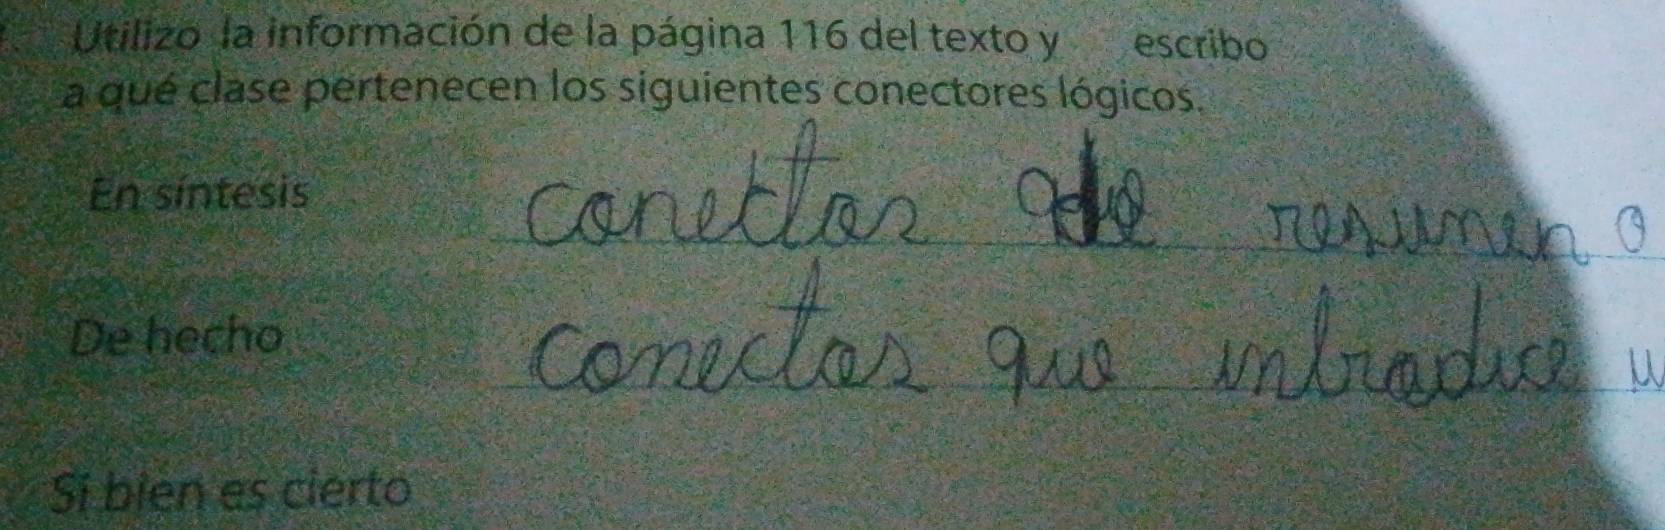 Utilizo la información de la página 116 del texto y escribo
a qué clase pertenecen los siguientes conectores lógicos.
En síntesis conector de resumen o
De hecho conector que introduce u
Si bien es cierto